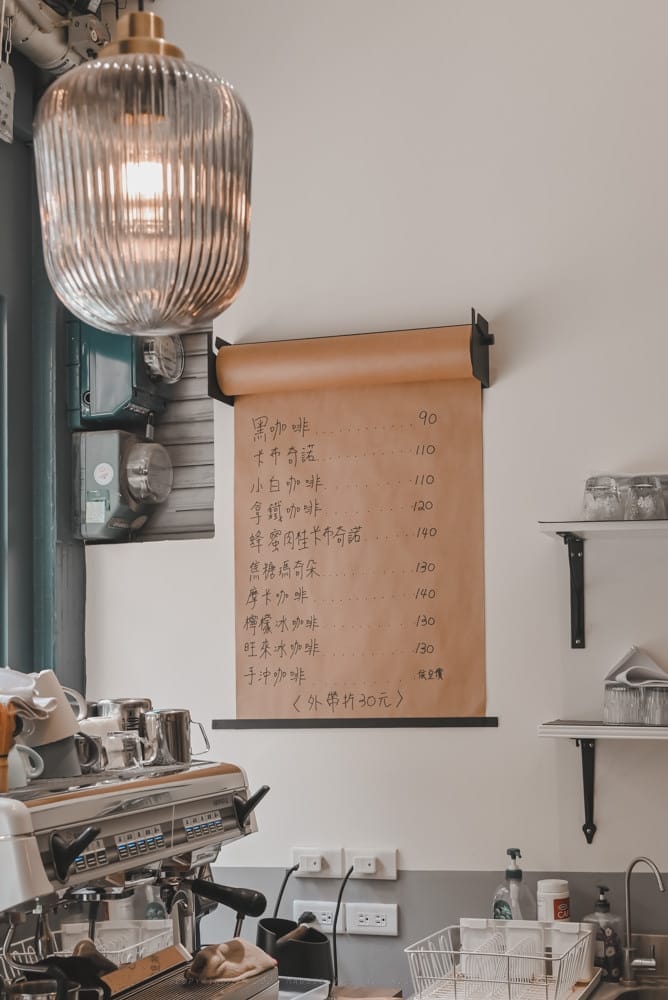 黑咖啡..............90
卡布奇諾..............110
小白咖啡..............110
拿鐵咖啡..............120
蜂蜜肉桂卡布奇諾......140
焦糖瑪奇朵..............130
摩卡咖啡..............140
檸檬冰咖啡..............130
旺來冰咖啡..............130
手沖咖啡..............依豆價
〈外帶折30元〉